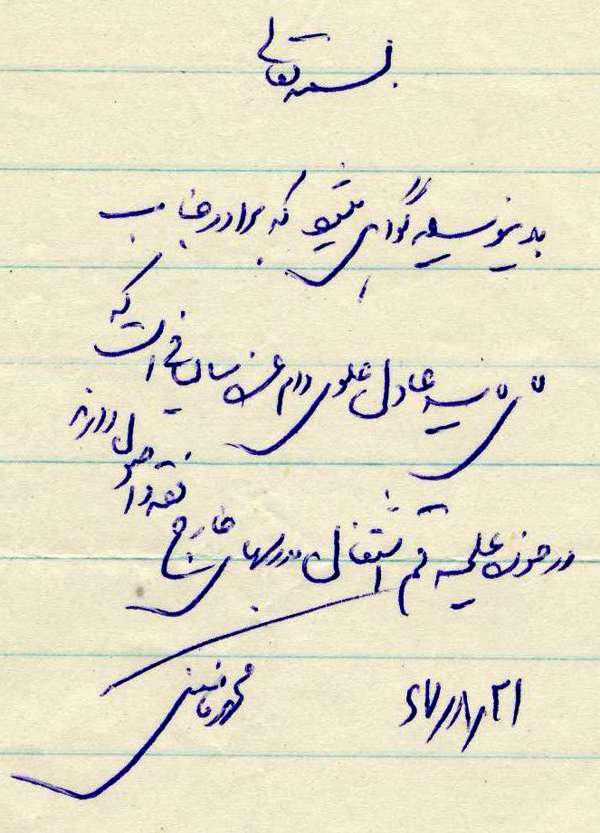 بسمه تعالی
بدینوسیله گواهی میشود که برادر جناب
آقای سید عادل علوی دام عزه سالهائی است که
در حوزه علمیه قم اشتغال بدرسهای خارج
فقه و اصول دارند
۶۷/۸/۲۱